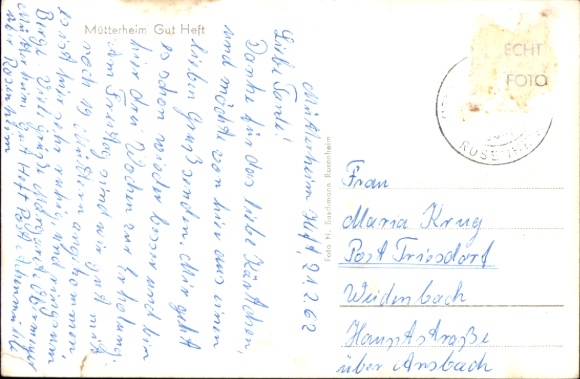 Mütterheim Gut Heft
Mütterheim Heft, 21.2.62
Liebe Tante!
Danke für das liebe Kärtchen,
und möchte von hier aus einen
lieben Gruß senden. Mir geht
es schon wieder besser und bin
hier drei Wochen zur Erholung.
Am Freitag sind wir erst mit
noch 19 Müttern angekommen,
es ist hier sehr ruhig, und ringsum
Berge. Viele Grüße Margarete
Mütterheim Gut Heft Post
über Rosenheim
Foto H. Buschmann Rosenheim
ECHT
FOTO
ROSENHEIM
Frau
Maria Krug
Post Triesdorf
Weidenbach
Hauptstraße
über Ansbach